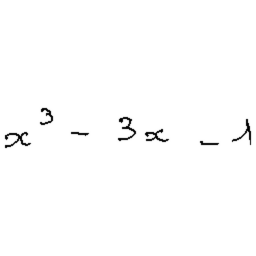 x³ - 3x - 1